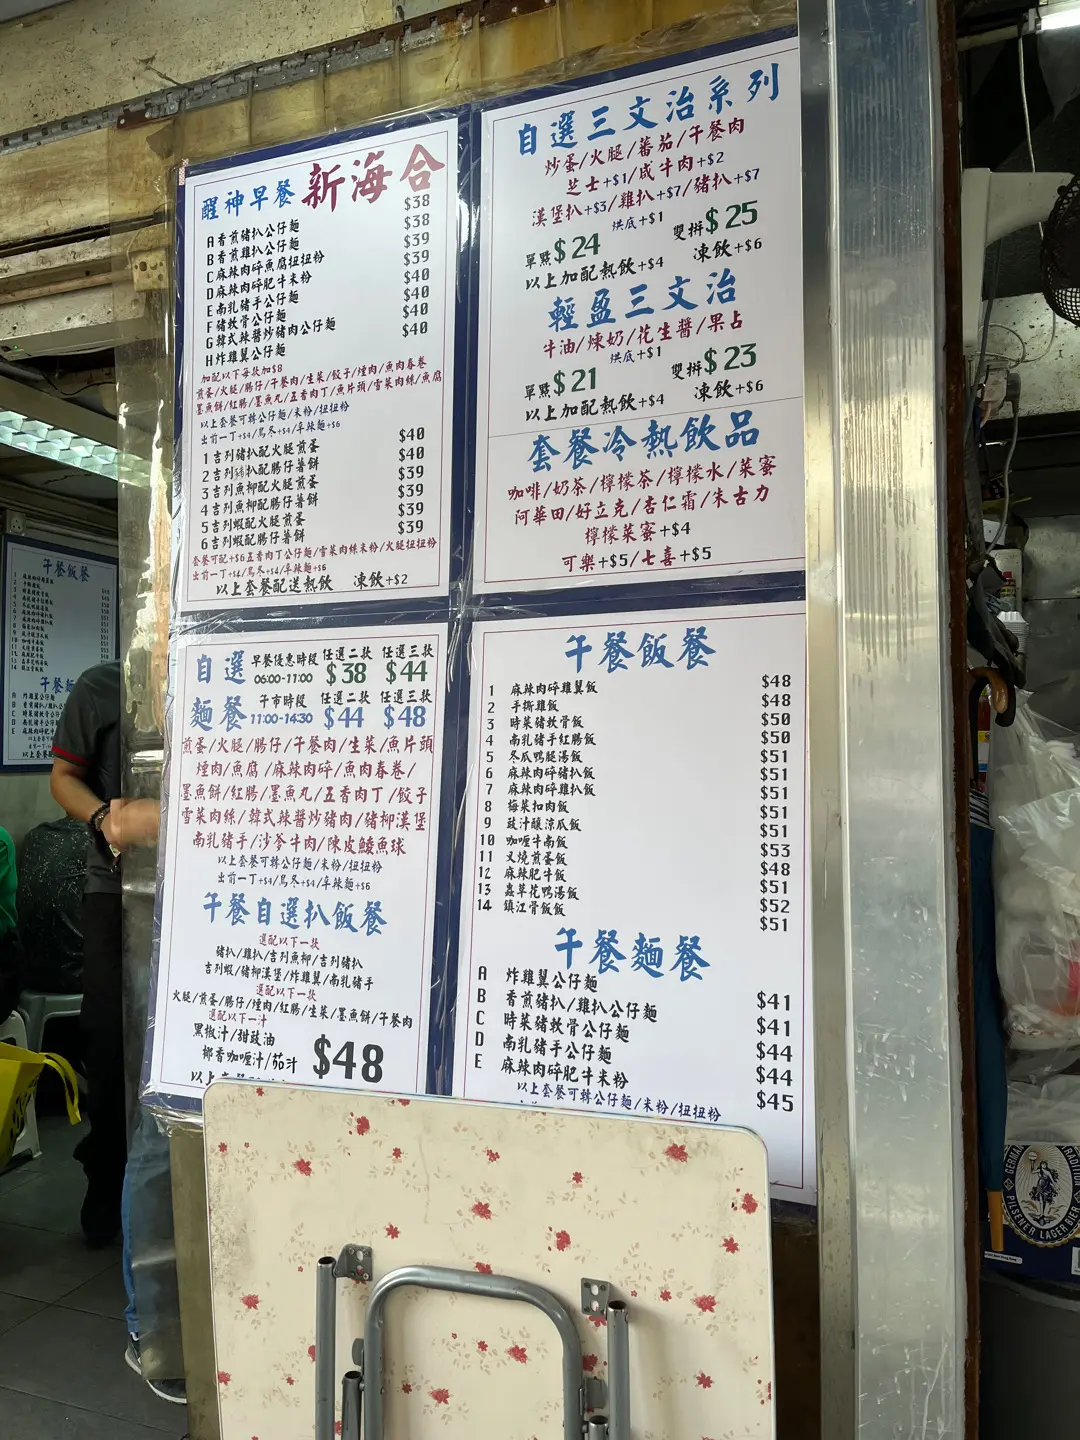 醒神早餐 新海合
A香煎豬扒公仔麵 $38
B香煎雞扒公仔麵 $38
C麻辣肉碎魚腐扭扭粉 $39
D麻辣肉碎肥牛米粉 $39
E南乳豬手公仔麵 $40
F豬軟骨公仔麵 $40
G韓式辣醬炒豬肉公仔麵 $40
H炸雞翼公仔麵 $40
加配以下每款加$8
煎蛋/火腿/腸仔/午餐肉/生菜/餃子/煙肉/魚肉春卷
墨魚餅/紅腸/墨魚丸/五香肉丁/魚片頭/雪菜肉絲/魚腐
以上套餐可轉公仔麵/米粉/扭扭粉
出前一丁+$4/烏冬+$4/辛辣麵+$6
1吉列豬扒配火腿煎蛋 $40
2吉列豬扒配腸仔薯餅 $40
3吉列魚柳配火腿煎蛋 $39
4吉列魚柳配腸仔薯餅 $39
5吉列蝦配火腿煎蛋 $39
6吉列蝦配腸仔薯餅 $39
套餐可配+$6五香肉丁公仔麵/雪菜肉絲米粉/火腿扭扭粉
出前一丁+$4/烏冬+$4/辛辣麵+$6
以上套餐配送熱飲 凍飲+$2
自選三文治系列
炒蛋/火腿/蕃茄/午餐肉
芝士+$1/咸牛肉+$2
漢堡扒+$3/雞扒+$7/豬扒+$7
烘底+$1
單點$24 雙拼$25
以上加配熱飲+$4 凍飲+$6
輕盈三文治
牛油/煉奶/花生醬/果占
烘底+$1
單點$21 雙拼$23
以上加配熱飲+$4 凍飲+$6
套餐冷熱飲品
咖啡/奶茶/檸檬茶/檸檬水/菜蜜
阿華田/好立克/杏仁霜/朱古力
檸檬菜蜜+$4
可樂+$5/七喜+$5
自選麵餐
早餐優惠時段 任選二款 任選三款
06:00-11:00 $38 $44
午市時段 任選二款 任選三款
11:00-14:30 $44 $48
煎蛋/火腿/腸仔/午餐肉/生菜/魚片頭
煙肉/魚腐/麻辣肉碎/魚肉春卷/
墨魚餅/紅腸/墨魚丸/五香肉丁/餃子
雪菜肉絲/韓式辣醬炒豬肉/豬柳漢堡
南乳豬手/沙爹牛肉/陳皮鯪魚球
以上套餐可轉公仔麵/米粉/扭扭粉
出前一丁+$4/烏冬+$4/辛辣麵+$6
午餐自選扒飯餐
選配以下一款
豬扒/雞扒/吉列魚柳/吉列豬扒
吉列蝦/豬柳漢堡/炸雞翼/南乳豬手
選配以下一款
火腿/煎蛋/腸仔/煙肉/紅腸/生菜/墨魚餅/午餐肉
選配以下一汁
黑椒汁/甜豉油
椰香咖喱汁/茄汁 $48
午餐飯餐
1 麻辣肉碎雞翼飯 $48
2 手撕雞飯 $48
3 時菜豬軟骨飯 $50
4 南乳豬手紅腸飯 $50
5 冬瓜鴨腿湯飯 $51
6 麻辣肉碎豬扒飯 $51
7 麻辣肉碎雞扒飯 $51
8 梅菜扣肉飯 $51
9 豉汁釀涼瓜飯 $51
10 咖喱牛南飯 $53
11 叉燒煎蛋飯 $48
12 麻辣肥牛飯 $51
13 蟲草花鴨湯飯 $52
14 鎮江骨飯飯 $51
午餐麵餐
A 炸雞翼公仔麵 $41
B 香煎豬扒/雞扒公仔麵 $41
C 時菜豬軟骨公仔麵 $44
D 南乳豬手公仔麵 $44
E 麻辣肉碎肥牛米粉 $45
以上套餐可轉公仔麵/米粉/扭扭粉
午餐飯餐
PILSENER LAGER BIER